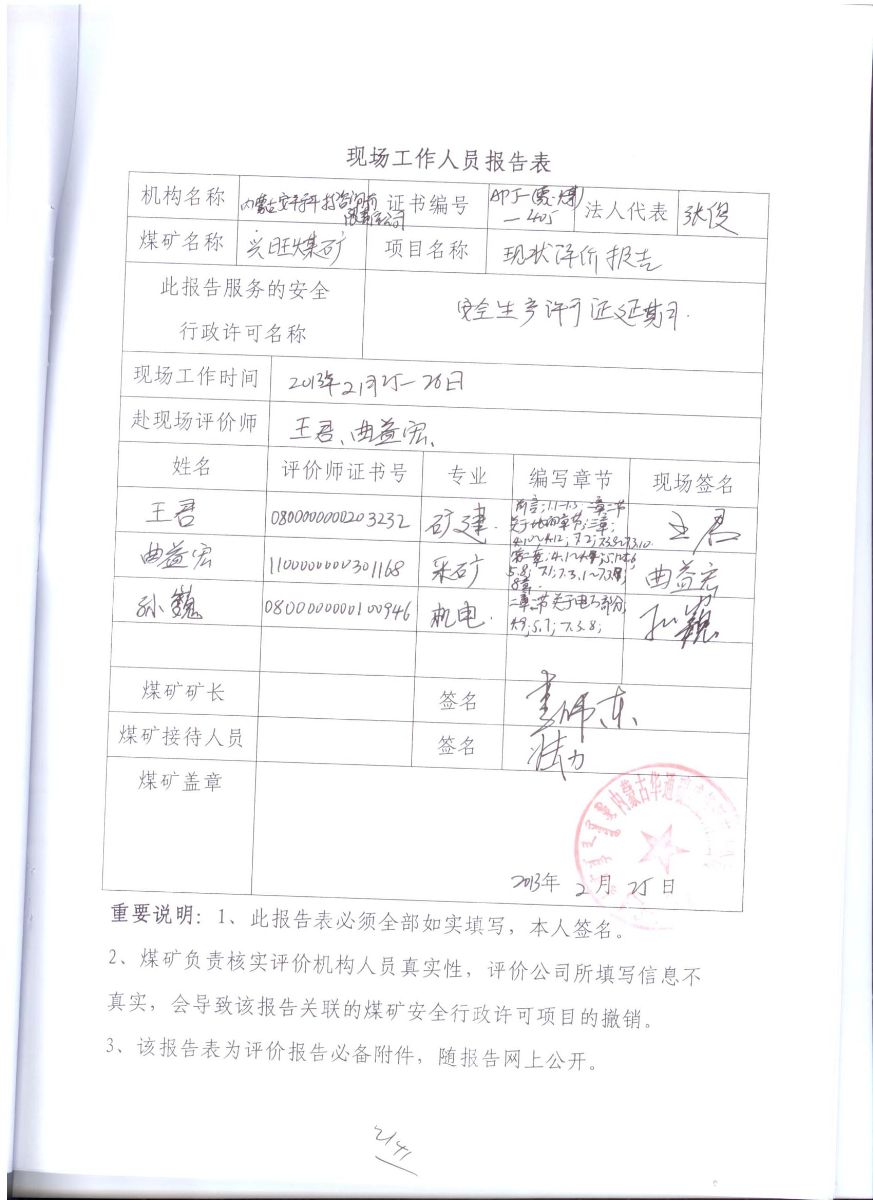 现场工作人员报告表
机构名称 内蒙古安 咨询有 证书编号 APJ-(蒙·煤) 法人代表 张俊
限责任公司 -405
煤矿名称 兴旺煤矿 项目名称 现状评价报告
此报告服务的安全
行政许可名称 安全生产许可证延期
现场工作时间 2013年2月25-26日
赴现场评价师 王君、曲益宏、
姓名 评价师证书号 专业 编写章节 现场签名
王君 0800000000203232 矿建 前言;1.1-1.3;二章二节 王君
关于 的章节;三章;
4.10~4.12;7.2;7.3.9~7.3.10
曲益宏 1100000000301168 采矿 5.8;7.1;7.3.1~7.3. 曲益宏
8章
孙巍 0800000000100946 机电 二章二节关于电 部分; 孙巍
4.9;5.7;7.3.8;
煤矿矿长 签名 伟东
煤矿接待人员 签名 力
煤矿盖章
内蒙古华通
2013年 2月 25日
重要说明：1、此报告表必须全部如实填写，本人签名。
2、煤矿负责核实评价机构人员真实性，评价公司所填写信息不
真实，会导致该报告关联的煤矿安全行政许可项目的撤销。
3、该报告表为评价报告必备附件，随报告网上公开。
2141